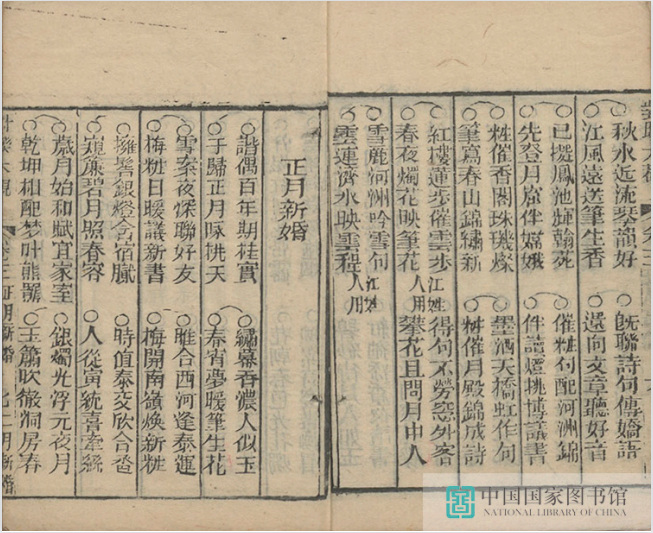 秋水近流琴韻好
旣聯詩句傳嬌語
江風遠送筆生香
還向文章聽好音
已擬鳳池輝翰苑
催粧句配河洲錦
先登月窟伴嫦娥
伴讀燈挑博議書
粧催香閣珠璣燦
墨洒天橋虹作句
筆寫春山錦繡新
粧催月殿錦成詩
紅樓蓮步催雲步
得句不勞窓外客
春夜燭花映筆花
攀花且問月中人
雪麗河洲吟雪句
江姓人用
雲連濟水映雲程
江姓人用
正月新婚
諧偶百年期桂實
繡幕香濃人似玉
于歸正月咏桃夭
春宵夢暖筆生花
雪案夜深聯好友
雎合西河逢泰運
梅粧日暖議新書
梅開南嶺煥新粧
擁髻銀燈含宿膩
時值泰交欣合巹
窺簾碧月照春容
人從寅統喜牽絲
歲月始和賦宜家室
銀燭光浮元夜月
乾坤相配梦叶熊羆
玉簫吹徹洞房春
中国国家图书馆
NATIONAL LIBRARY OF CHINA